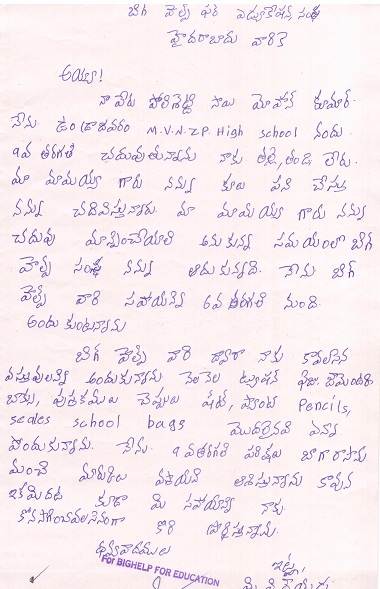 బిగ్ హెల్ప్ ఫర్ ఎడ్యుకేషన్ సంస్థ
హైదరాబాదు వారికి
అయ్యా!
నా పేరు పోలిశెట్టి సాయి మోహన్ కుమార్.
నేను ఉండ్రాజవరం M.V.N.Z.P. High school నందు
9వ తరగతి చదువుతున్నాను నాకు తల్లి, తండ్రి లేరు.
మా మామయ్య గారు నన్ను కూలి పని చేస్తు
నన్ను చదివిస్తున్నారు. మా మామయ్య గారు నన్ను
చదువు మాన్పించేయాలి అనుకున్న సమయంలో బిగ్
హెల్ప్ సంస్థ నన్ను ఆదుకున్నది. నేను బిగ్
హెల్ప్ వారి సహాయాన్ని 6వ తరగతి నుండి
అందు కుంటున్నాను
బిగ్ హెల్ప్ వారి ద్వారా నాకు కావలసిన
వస్తువులన్ని అందుకున్నాను నెలనెల ట్యూషన్ ఫీజు, జామెంటరి
బాక్సు, పుస్తకములు చెప్పులు షర్ట్, ప్యాంట్ Pencils,
scales school bags మొదలైనవి ఎన్నో
పొందుకున్నాను. నేను 9వతరగతి పరీక్షలు బాగా రాసాను
మంచి మార్కులు వస్తాయని ఆశిస్తున్నాను కావున
ఇకమీదట కూడా మీ సహాయాన్ని నాకు
కొనసాగించవలసినంగా కోరి ప్రార్థిస్తున్నాను.
ధన్యవాదములు
ఇట్లు,
For BIGHELP FOR EDUCATION